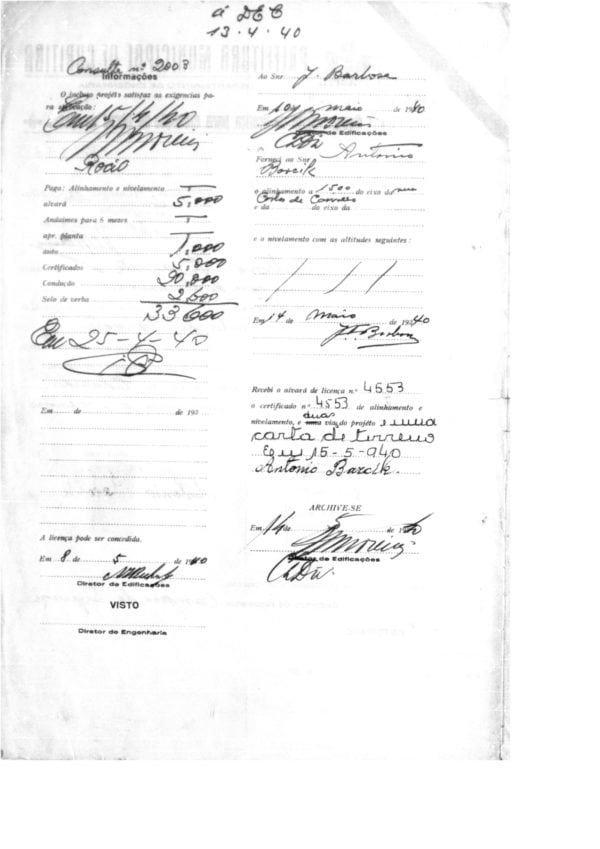 á DEC
13-4-40
Consulte nº 2003
Informações
O incluso projéto satisfaz as exigencias pa-
ra aprovação:
Em 15/4/40
Rocio
Pago: Alinhamento e nivelamento
alvará 5,000
Andaimes para 6 mezes
apr. planta
auto 1,000
Certificados 5,000
Condução 20,000
Selo de verba 2,600
33,600
Em 25-4-40
Em de de 193
A licença pode ser concedida.
Em 8 de 5 de 1940
Diretor de Edificações
VISTO
Diretor de Engenharia
Ao Snr. J. Barbosa
Em 10 de maio de 1940
Diretor de Edificações
Forneci ao Snr. Antonio
Barcik
o alinhamento a 1500 do eixo da rua
e da do eixo da
e o nivelamento com as altitudes seguintes:
Em 14 de Maio de 1940
Recebi o alvará de licença n.º 4553
o certificado nº 4553 de alinhamento e
duas
nivelamento, e uma via do projéto e uma
carta de terreno
Em 15-5-940
Antonio Barcik.
ARCHIVE-SE
Em 14 de 5 de 1940
Diretor de Edificações